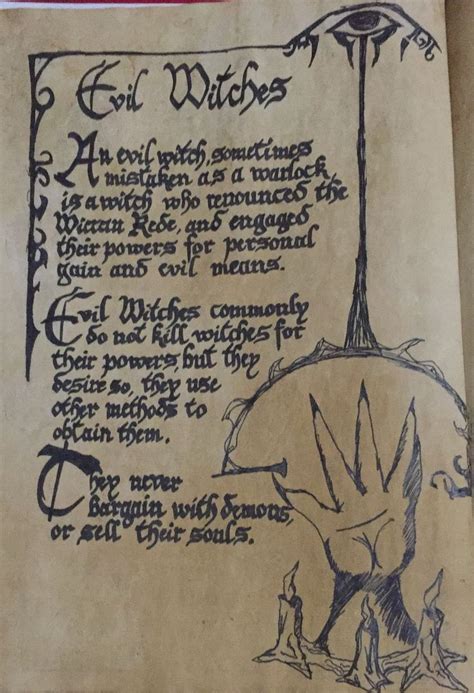 Evil Witches
An evil witch, sometimes
mistaken as a warlock
is a witch who renounced the
Wiccan Rede, and engaged
their powers for personal
gain and evil means.
Evil Witches commonly
do not kill witches for
their powers, but they
desire so, they use
other methods to
obtain them.
They never
bargain with demons,
or sell their souls.